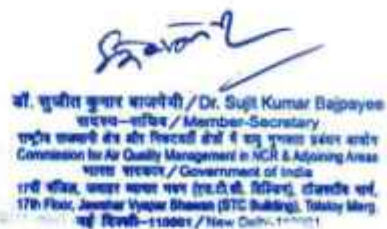 डॉ. सुजीत कुमार बाजपेयी / Dr. Sujit Kumar Bajpayee
सदस्य-सचिव / Member-Secretary
राष्ट्रीय राजधानी क्षेत्र और निकटवर्ती क्षेत्रों में वायु गुणवत्ता प्रबंधन आयोग
Commission for Air Quality Management in NCR & Adjoining Areas
भारत सरकार / Government of India
17वीं मंजिल, जवाहर व्यापार भवन (एस.टी.सी. बिल्डिंग), टॉलस्टॉय मार्ग,
17th Floor, Jawahar Vyapar Bhawan (STC Building), Tolstoy Marg,
नई दिल्ली-110001 / New Delhi-110001